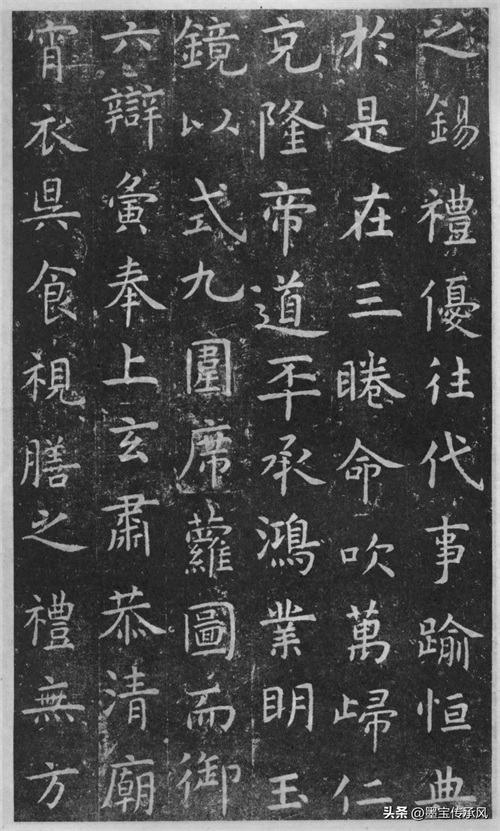 之錫禮優往代事踰恒典
於是在三睠命吹萬歸仁
克隆帝道丕承鴻業明玉
鏡以式九圍席蘿圖而御
六辯寅奉上玄肅恭清廟
宵衣昃食視膳之禮無方
头条 @墨宝传承风